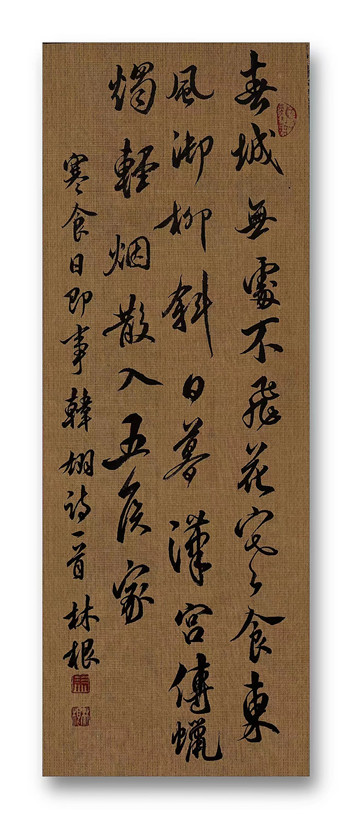 春城無處不飛花寒食東
風御柳斜日暮漢宮傳蠟
燭輕烟散入五侯家
寒食日即事韓翃詩一首林根